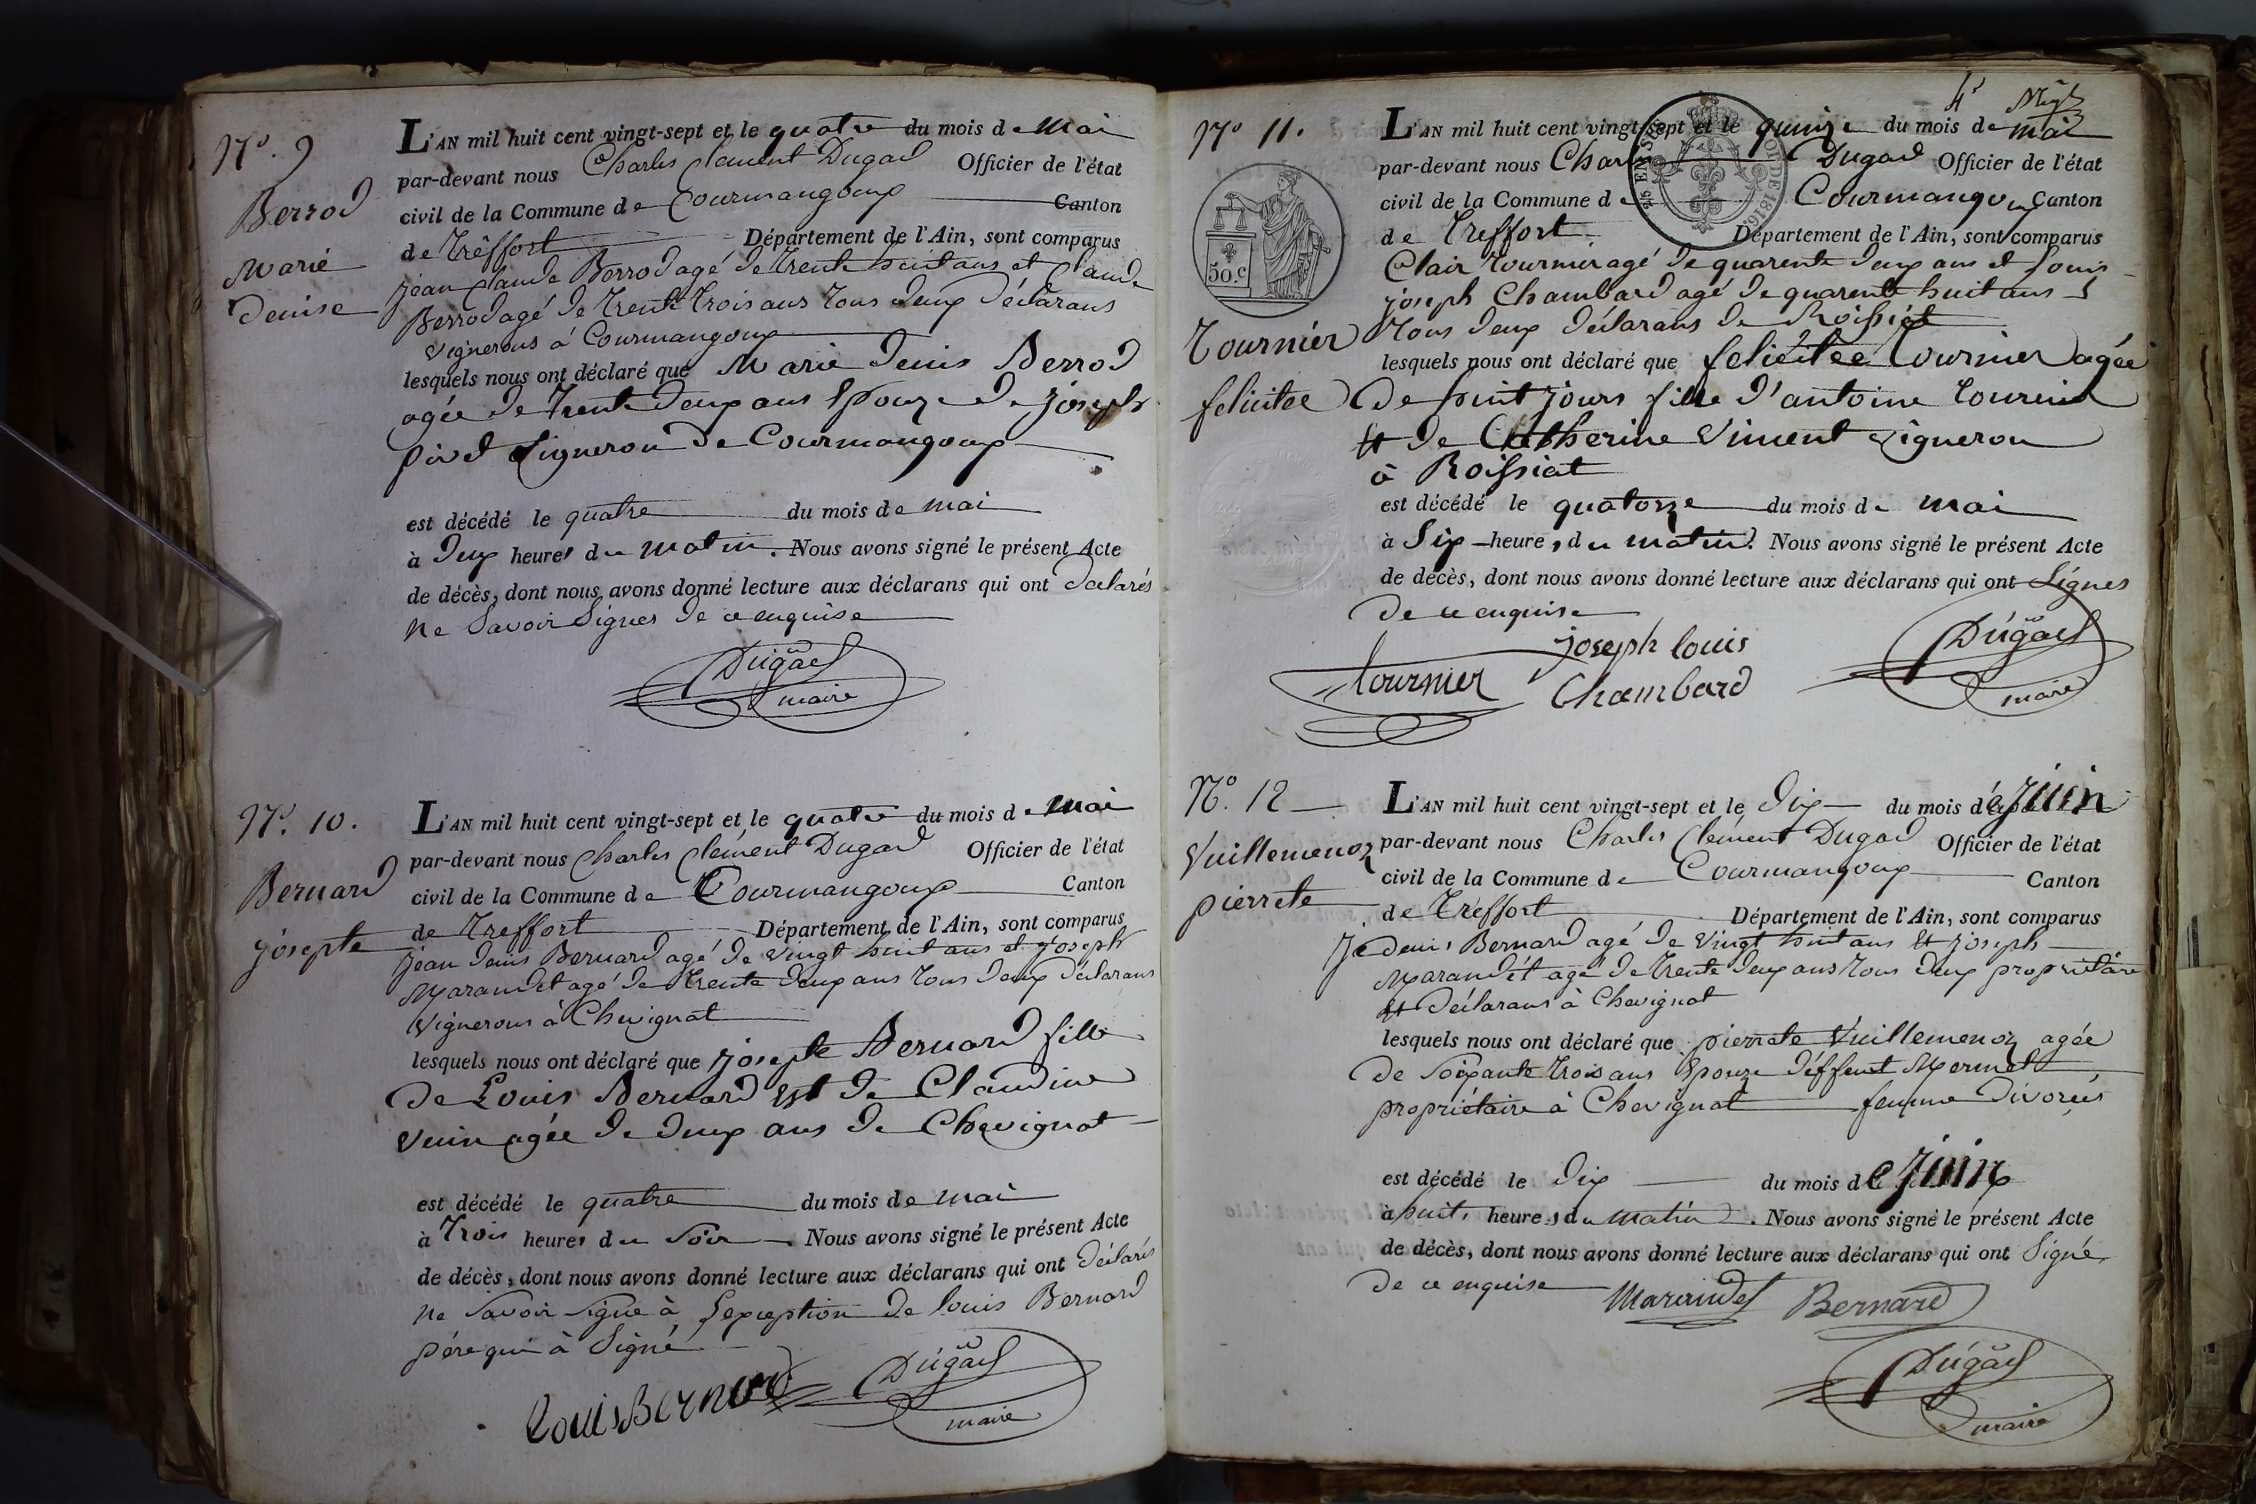 N°. 9
Berrod
Marie
Denise
L'AN mil huit cent vingt-sept et le quatre du mois de Mai
par-devant nous Charles Clement Dugad Officier de l'état
civil de la Commune de Courmangoux Canton
de Tréffort Département de l'Ain, sont comparus
jean Claude Berrod agé de trente huit ans et Claude
Berrod agé de trente trois ans tous deux déclarans
vignerons à Courmangoux
lesquels nous ont déclaré que Marie Denis Berrod
agée de trente deux ans Epouze de joseph
pivet vigneron de Courmangoux
est décédé le quatre du mois de mai
à deux heures du matin. Nous avons signé le présent Acte
de décès, dont nous avons donné lecture aux déclarans qui ont déclarés
ne Savoir Signer de ce enquise
Dugad
maire
N°. 10.
Bernard
josephte
L'AN mil huit cent vingt-sept et le quatre du mois de Mai
par-devant nous Charles Clément Dugad Officier de l'état
civil de la Commune de Courmangoux Canton
de Treffort Département de l'Ain, sont comparus
jean denis Bernard agé de vingt huit ans et joseph
Marandet agé de trente deux ans tous deux déclarans
vignerons à Chevignat
lesquels nous ont déclaré que josephte Bernard fille
de Louis Bernard Est de Claudine
vuin agée de deux ans de Chevignat
est décédé le quatre du mois de mai
à trois heures du Soir. Nous avons signé le présent Acte
de décès, dont nous avons donné lecture aux déclarans qui ont déclarés
ne Savoir Signe à Lexception de louis Bernard
pére qui à Signé
Louis Bernard
Dugad
maire
4e
N° 11.
50.c
Tournier
felicitee
L'AN mil huit cent vingt-sept et le quinze du mois de mai
par-devant nous Char Dugad Officier de l'état
civil de la Commune de Courmangoux Canton
de Treffort Département de l'Ain, sont comparus
Clair Tournier agé de quarente deux ans et Louis
joseph Chambard agé de quarente huit ans
tous deux déclarans de Roissiat
lesquels nous ont déclaré que felicitée Tournier agée
de huit jours fille d'antoine Tournier
Et de Catherine Vincent vigneron
à Roissiat
est décédé le quatorze du mois de mai
à Six heures du matin. Nous avons signé le présent Acte
de décès, dont nous avons donné lecture aux déclarans qui ont Signes
de ce enquise
Tournier
joseph louis
Chambard
Dugad
maire
N°. 12
Vuillemenoz
pierrete
L'AN mil huit cent vingt-sept et le dix du mois de juin
par-devant nous Charles Clement Dugad Officier de l'état
civil de la Commune de Courmangoux Canton
de Tréffort Département de l'Ain, sont comparus
Je denis Bernard agé de vingt huit ans Et joseph
Marandét agé de trente deux ans tous deux propriétaire
Et déclarans à Chevignat
lesquels nous ont déclaré que pierrete Vuillemenoz agée
de Soixante trois ans Epouze déffeut Mermet
propriétaire à Chevignat femme divorcés
est décédé le dix du mois de juin
à huit heures du matin. Nous avons signé le présent Acte
de décès, dont nous avons donné lecture aux déclarans qui ont Signé
de ce enquise
Marandet
Bernard
Dugad
maire